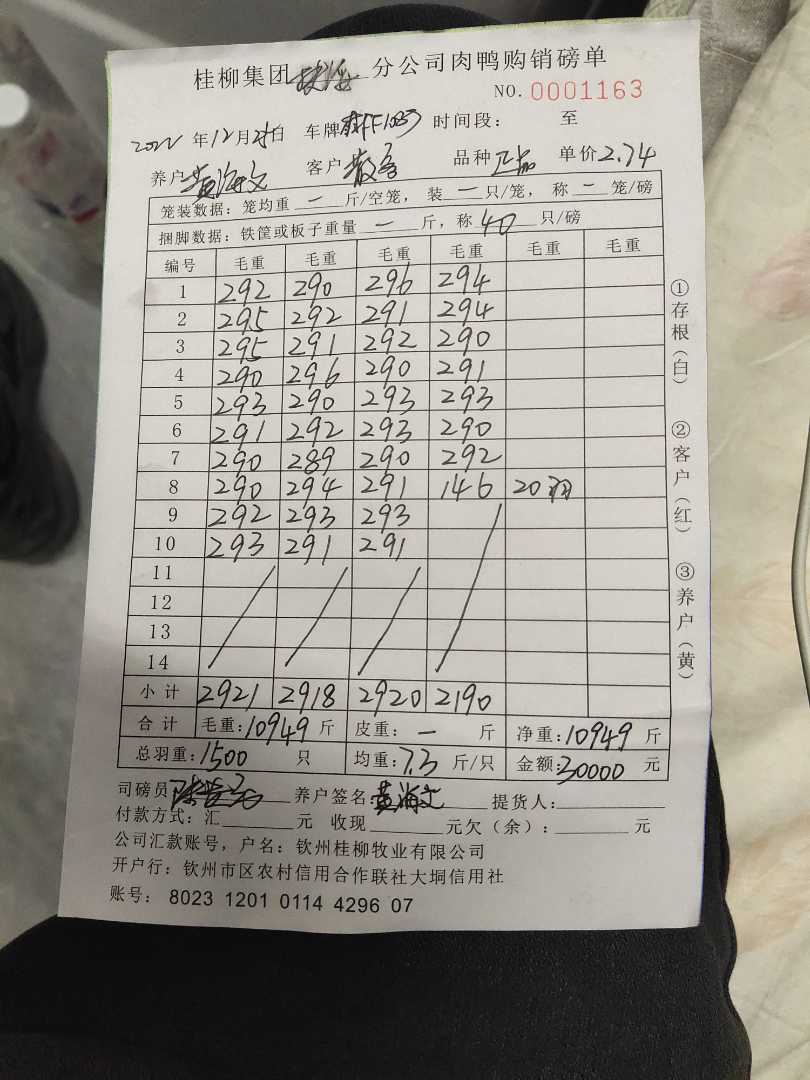 桂柳集团钦海分公司肉鸭购销磅单
NO. 0001163
2022年12月25日 车牌 时间段： 至
养户黄海文 客户散客 品种 单价2.74
笼装数据：笼均重一斤/空笼，装一只/笼，称一笼/磅
捆脚数据：铁筐或板子重量一斤，称40只/磅
编号 毛重 毛重 毛重 毛重 毛重 毛重
1 292 290 296 294
2 295 292 291 294
3 295 291 292 290
4 290 296 290 291
5 293 290 293 293
6 291 292 293 290
7 290 289 290 292
8 290 294 291 146 20羽
9 292 293 293
10 293 291 291
11
12
13
14
小计 2921 2918 2920 2190
合计 毛重：10949斤 皮重：一斤 净重：10949斤
总羽重：1500只 均重：7.3斤/只 金额：30000元
司磅员 养户签名：黄海文 提货人：
付款方式：汇 元 收现 元欠（余）： 元
公司汇款账号，户名：钦州桂柳牧业有限公司
开户行：钦州市区农村信用合作联社大垌信用社
账号： 8023 1201 0114 4296 07
①存根（白）
②客户（红）
③养户（黄）